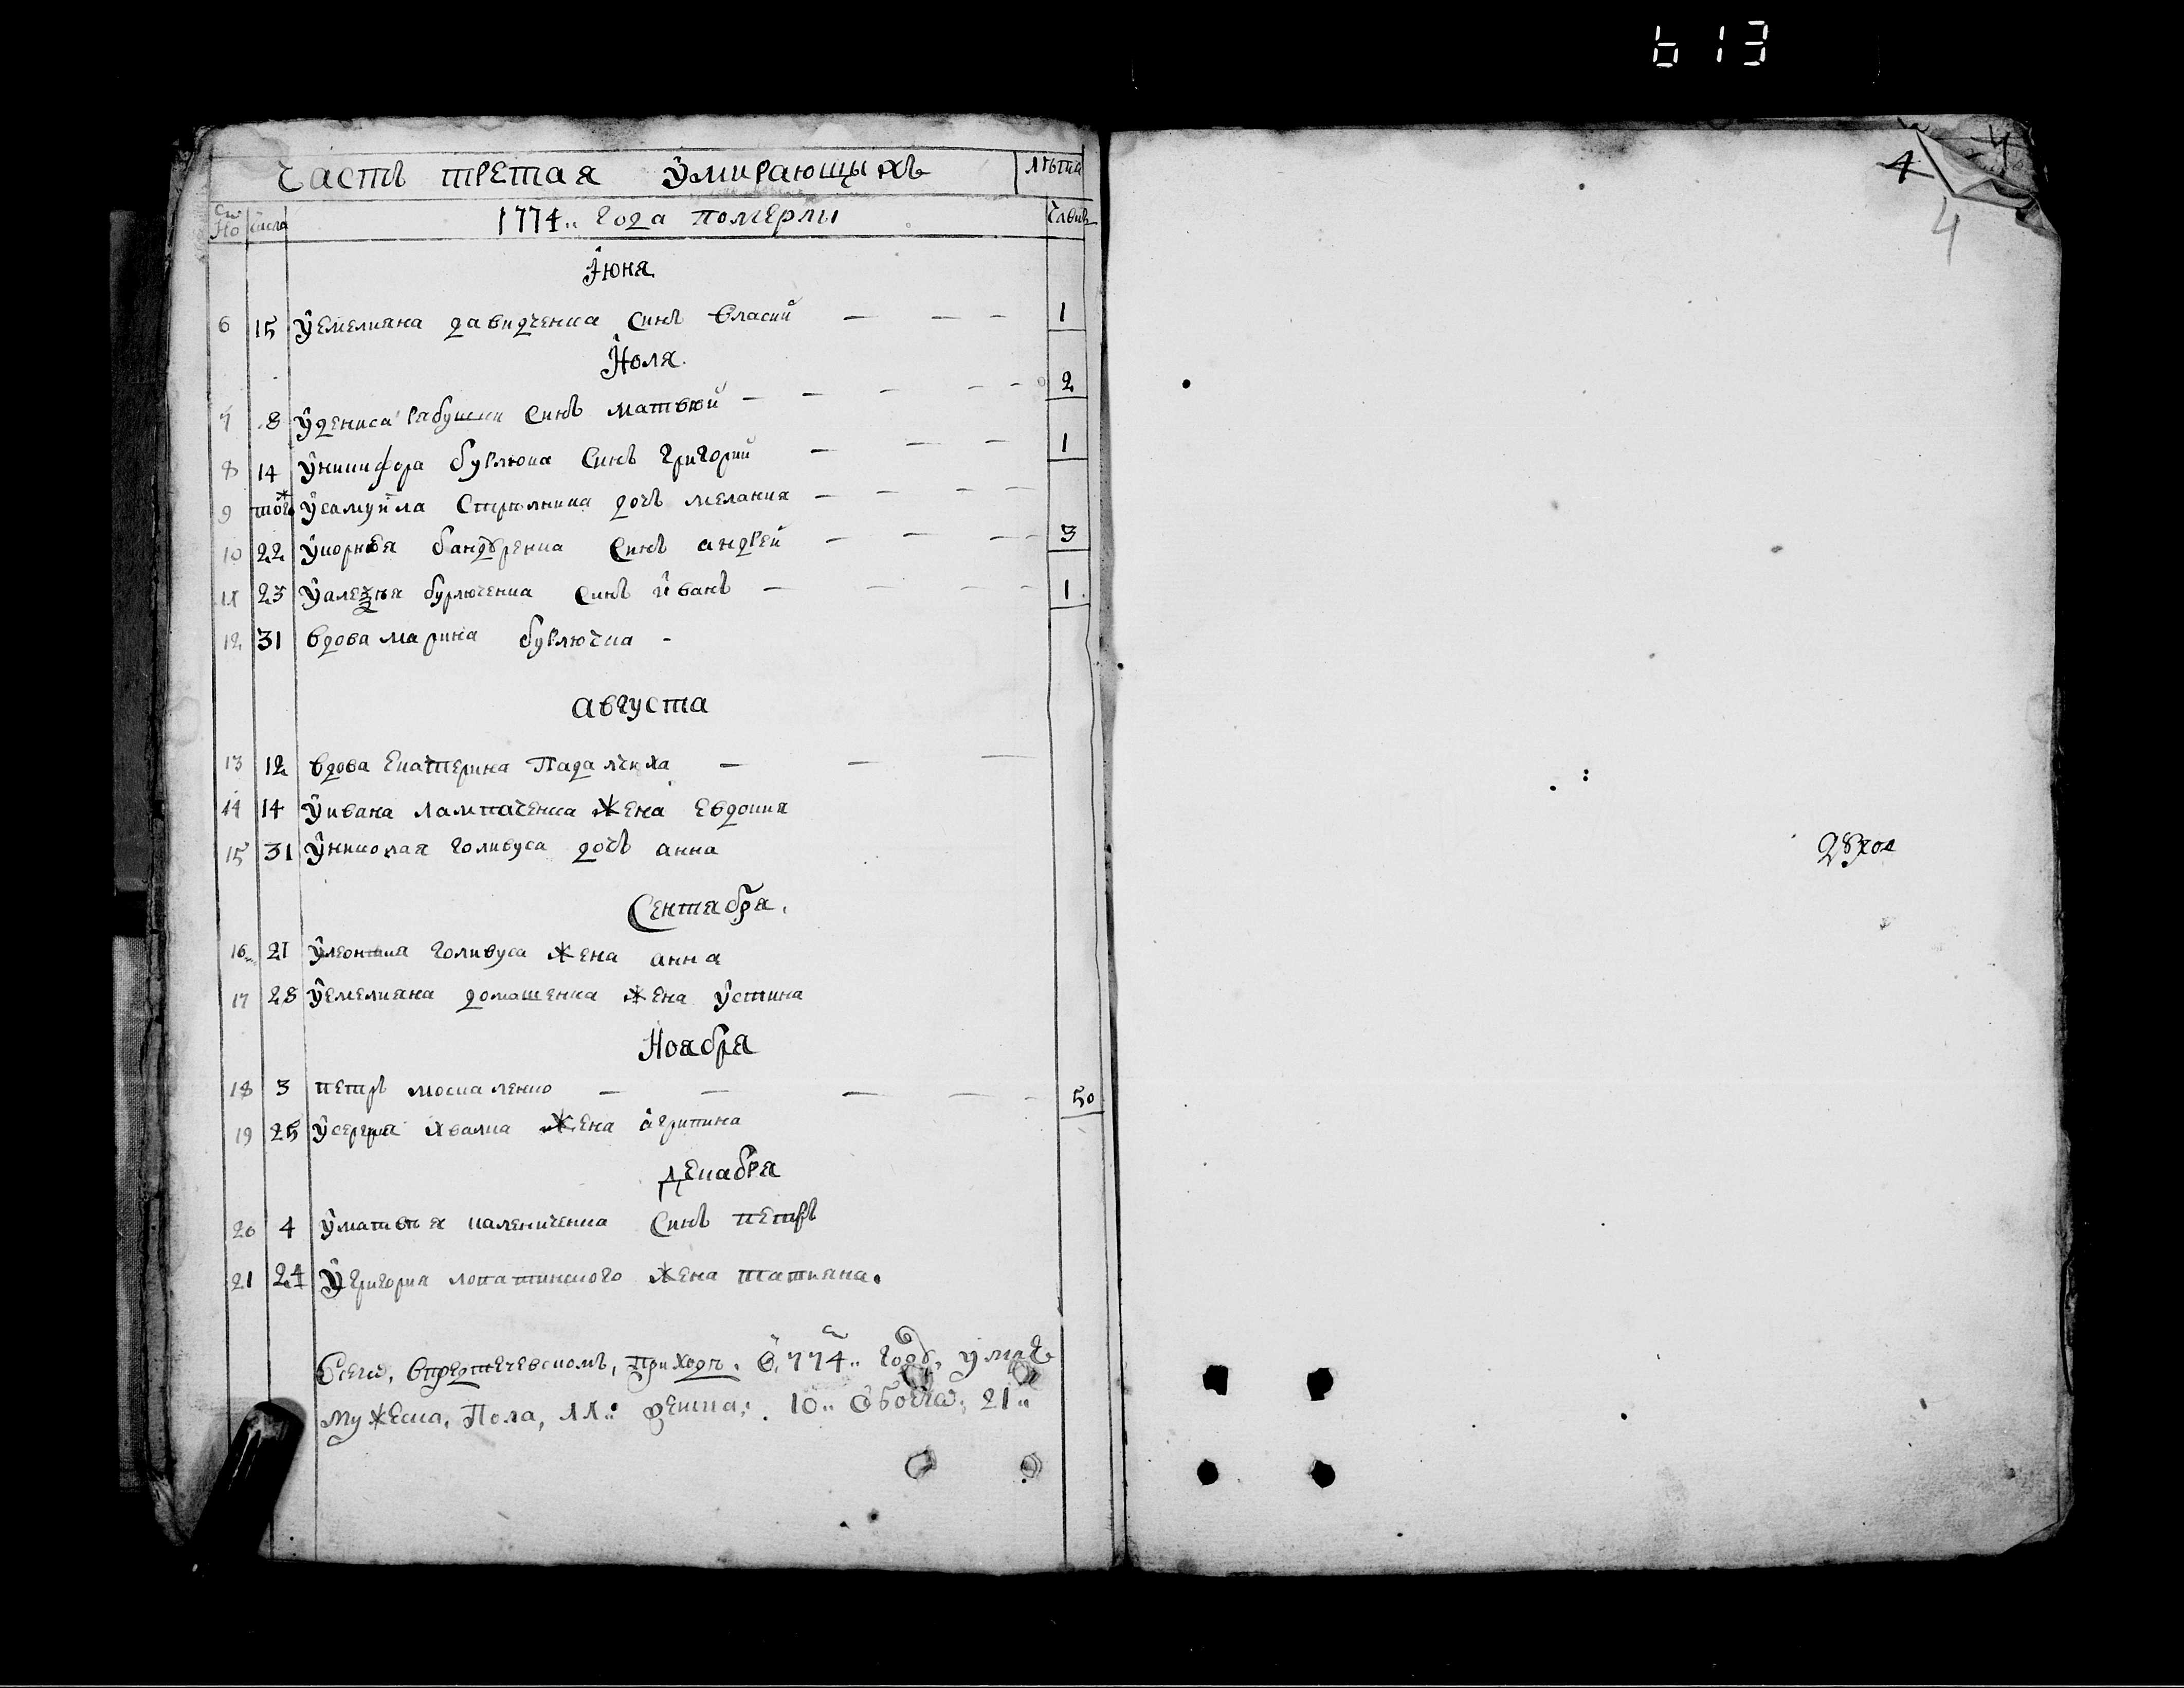 613
Часть третая умирающыхъ лѣта
Число 1774.. года померли
Іюня
6 15 У Емелияна давидченка синъ власий — — — 1
Июля.
7 8 У дениса рябушки синъ матвѣй — — — — 2
8 14 У никифора бурлюка синъ григорий — — — 1
9 тож У самуйла Стрилника дочь мелания — — — —
10 22 У корнѣя бандѣренка синъ андрей — — — — 3
11 23 У алеѯѣя бурлюченка синъ иванъ — — — — 1.
12 31 вдова марина бурлючка -
августа
13 12 вдова Екатерина Падалчиха — — —
14 14 У ивана лампаченка жена Евдокия
15 31 У николая голивуса дочь анна
Сентября.
16 21 У леонтия голивуса жена анна
17 28 У Емелияна домашенка жена Устина
Ноября
18 3 петръ москаленко — — — — 50
19 25 У сергия хвалка жена агрипина
декабря
20 4 У матвѣя калениченка синъ петръ
21 24 У григория лопатинского жена татияна.
Всего, приходѣ. 774.. году,
мужеска, Пола, 11.: женска: 10.. обоего, 21..
4
4
4